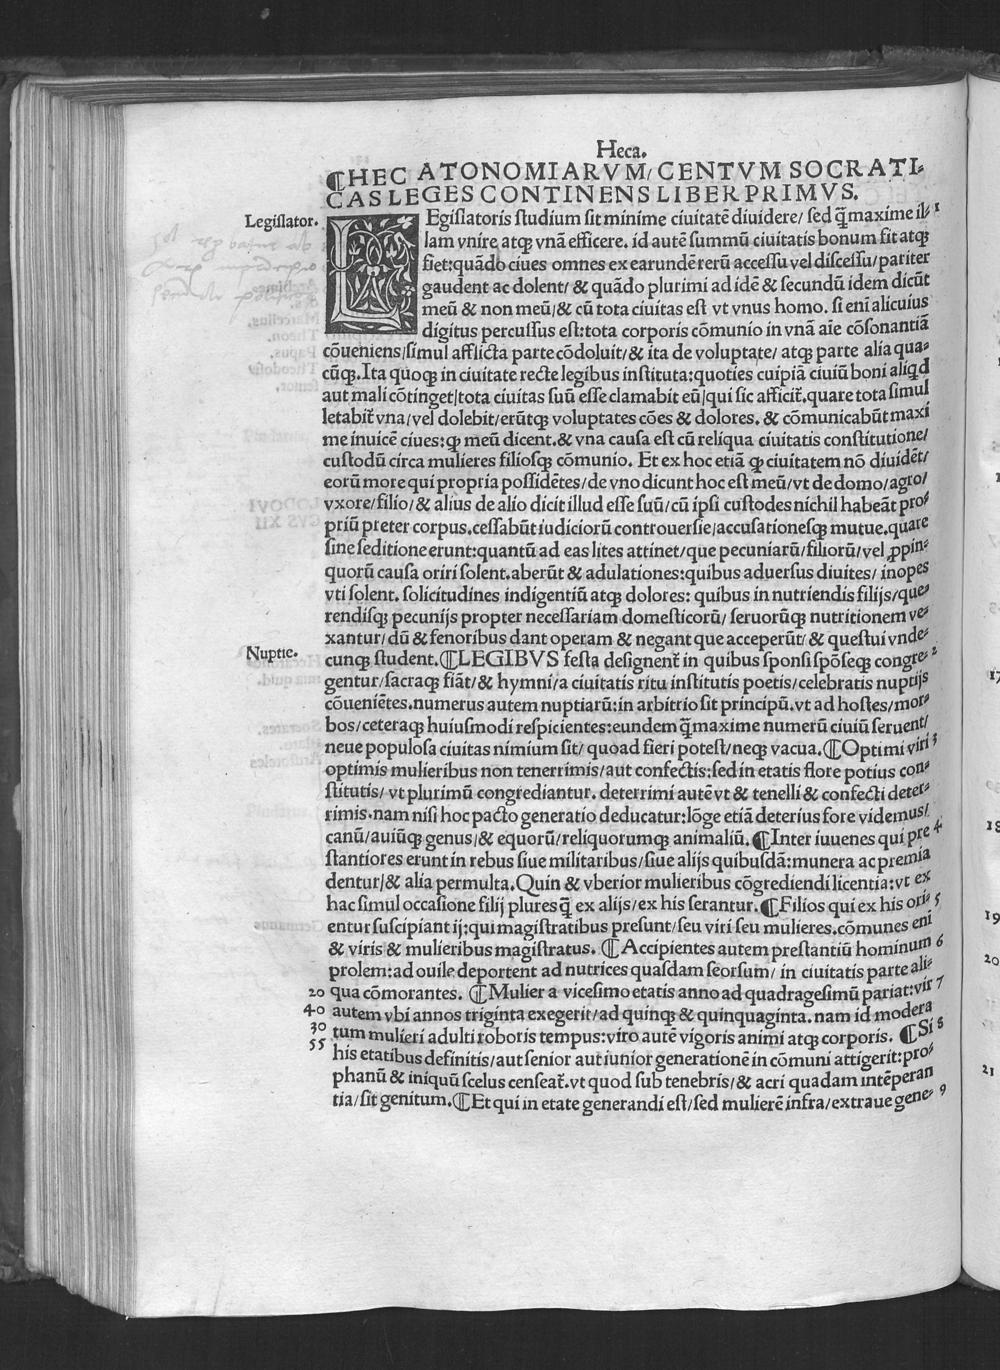 Heca.
¶HECATONOMIARVM/ CENTVM SOCRATI-
CAS LEGES CONTINENS LIBER PRIMVS.
Legislator.
LEgislatoris studium sit minime ciuitatē diuidere/ sed q̄maxime il- 1
lam vnire atqꝫ vnā efficere. id autē summū ciuitatis bonum fit atqꝫ
fiet: quādo ciues omnes ex earundē rerū accessu vel discessu/ pariter
gaudent ac dolent/ & quādo plurimi ad idē & secundū idem dicūt
meū & non meū/ & cū tota ciuitas est vt vnus homo. si enī alicuius
digitus percussus est: tota corporis cōmunio in vnā aīe cōsonantiā
cōueniens/ simul afflicta parte cōdoluit/ & ita de voluptate/ atqꝫ parte alia qua-
cūqꝫ. Ita quoqꝫ in ciuitate recte legibus instituta: quoties cuipiā ciuiū boni aliqd
aut mali cōtinget/ tota ciuitas suū esse clamabit eū/ qui sic afficit᷑. quare tota simul
letabit᷑ vna/ vel dolebit/ erūtqꝫ voluptates cōes & dolores. & cōmunicabūt maxi
me inuicē ciues: ꝙ meū dicent. & vna causa est cū reliqua ciuitatis constitutione/
custodū circa mulieres filiosqꝫ cōmunio. Et ex hoc etiā ꝙ ciuitatem nō diuidēt/
eorū more qui propria possidētes/ de vno dicunt hoc est meū/ vt de domo/ agro/
vxore/ filio/ & alius de alio dicit illud esse suū/ cū ipsi custodes nichil habeāt pro-
priū preter corpus. cessabūt iudiciorū controuersie/ accusationesqꝫ mutue. quare
sine seditione erunt: quantū ad eas lites attinet/ que pecuniarū/ filiorū/ vel ꝓpin-
quorū causa oriri solent. aberūt & adulationes: quibus aduersus diuites/ inopes
vti solent. solicitudines indigentiū atqꝫ dolores: quibus in nutriendis filijs/ que-
rendisqꝫ pecunijs propter necessariam domesticorū/ seruorūqꝫ nutritionem ve-
xantur/ dū & fenoribus dant operam & negant que acceperūt/ & questui vnde-
Nuptie.
cunqꝫ student. ¶LEGIBVS festa designent᷑ in quibus sponsi spōseqꝫ congre- 2
gentur/ sacraqꝫ fiāt/ & hymni/ a ciuitatis ritu institutis poetis/ celebratis nuptijs
cōueniētes. numerus autem nuptiarū: in arbitrio sit principū. vt ad hostes/ mor-
bos/ ceteraqꝫ huiusmodi respicientes: eundem q̄maxime numerū ciuiū seruent/
neue populosa ciuitas nimium sit/ quoad fieri potest/ neqꝫ vacua. ¶Optimi viri 3
optimis mulieribus non tenerrimis/ aut confectis: sed in etatis flore potius con-
stitutis/ vt plurimū congrediantur. deterrimi autē vt & tenelli & confecti deter-
rimis. nam nisi hoc pacto generatio deducatur: lōge etiā deterius fore videmus/
canū/ auiūqꝫ genus/ & equorū/ reliquorumqꝫ animaliū. ¶Inter iuuenes qui pre 4
stantiores erunt in rebus siue militaribus/ siue alijs quibusdā: munera ac premia
dentur/ & alia permulta. Quin & vberior mulieribus cōgrediendi licentia: vt ex
hac simul occasione filij plures q̄ ex alijs/ ex his serantur. ¶Filios qui ex his ori- 5
entur suscipiant ij: qui magistratibus presunt/ seu viri seu mulieres. cōmunes enī
& viris & mulieribus magistratus. ¶Accipientes autem prestantiū hominum 6
prolem: ad ouile deportent ad nutrices quasdam seorsum/ in ciuitatis parte ali-
20 qua cōmorantes. ¶Mulier a vicesimo etatis anno ad quadragesimū pariat: vir 7
40 autem vbi annos triginta exegerit/ ad quinqꝫ & quinquaginta. nam id modera
30 tum mulieri adulti roboris tempus: viro autē vigoris animi atqꝫ corporis. ¶Si 8
55 his etatibus definitis/ aut senior aut iunior generationē in cōmuni attigerit: pro-
phanū & iniquū scelus censeat᷑. vt quod sub tenebris/ & acri quadam intēperan
tia/ sit genitum. ¶Et qui in etate generandi est/ sed mulierē infra/ extraue gene- 9